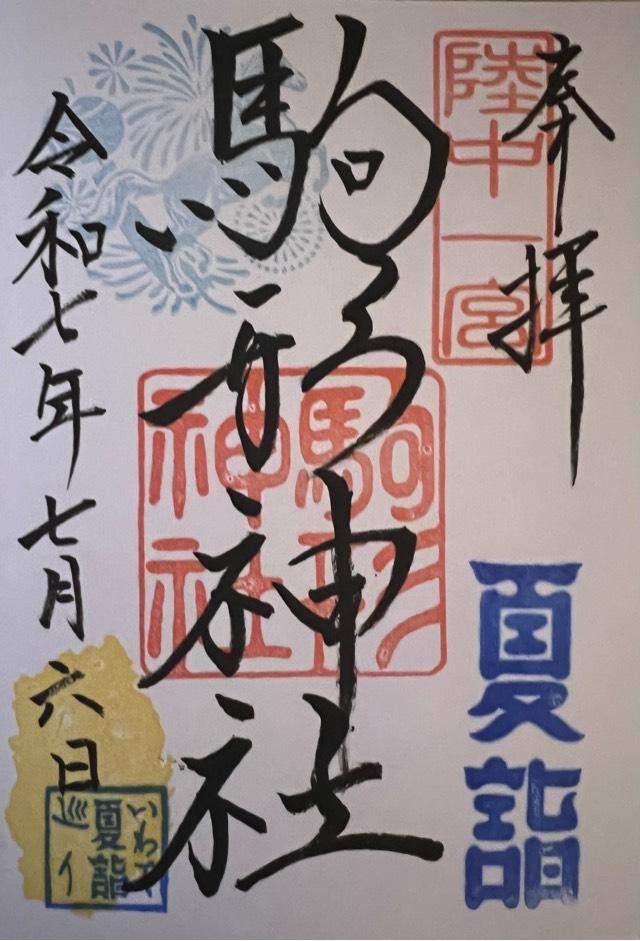 奉拝
陸中一宮
夏詣
駒形神社
駒形
神社
令和七年七月六日
いわて
夏詣
巡り